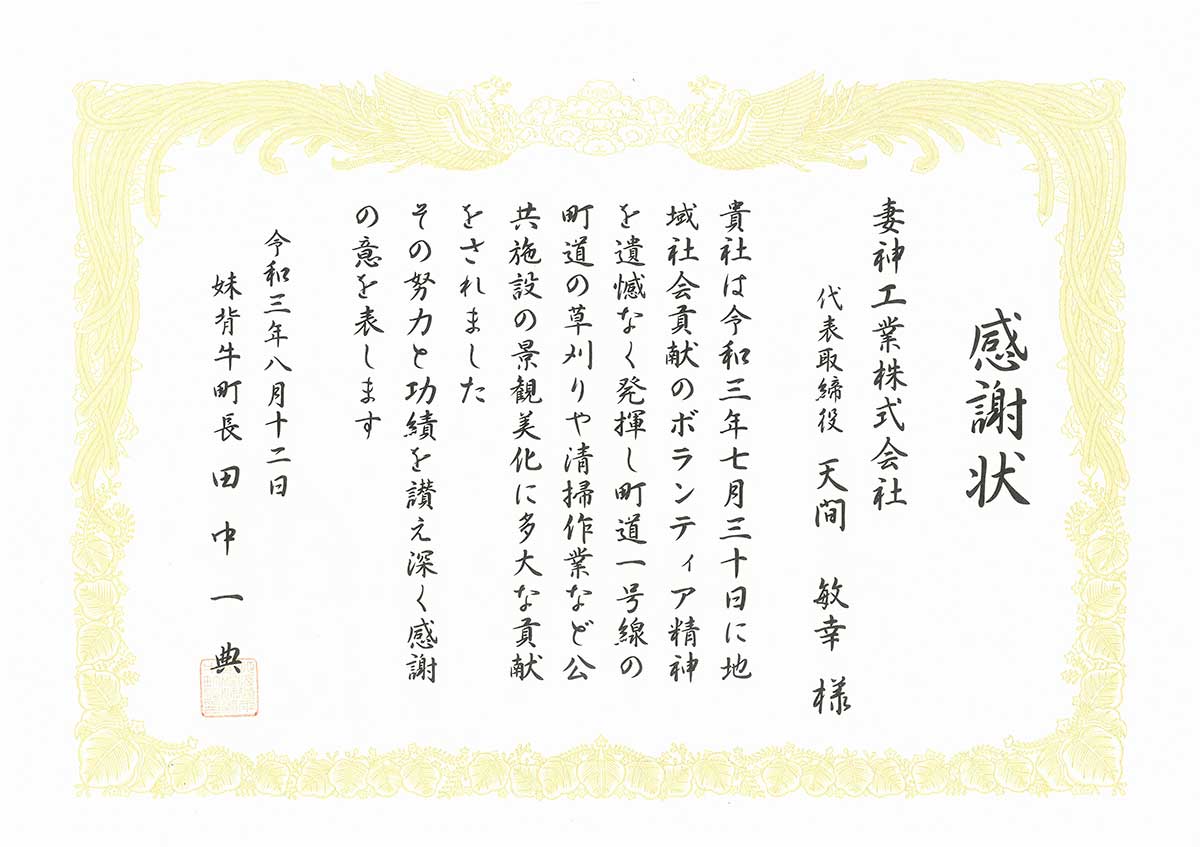 感謝状
妻神工業株式会社
代表取締役 天間 敏幸 様
貴社は令和三年七月三十日に地
域社会貢献のボランティア精神
を遺憾なく発揮し町道一号線の
町道の草刈りや清掃作業など公
共施設の景観美化に多大な貢献
をされました
その努力と功績を讃え深く感謝
の意を表します
令和三年八月十二日
妹背牛町長 田中一典